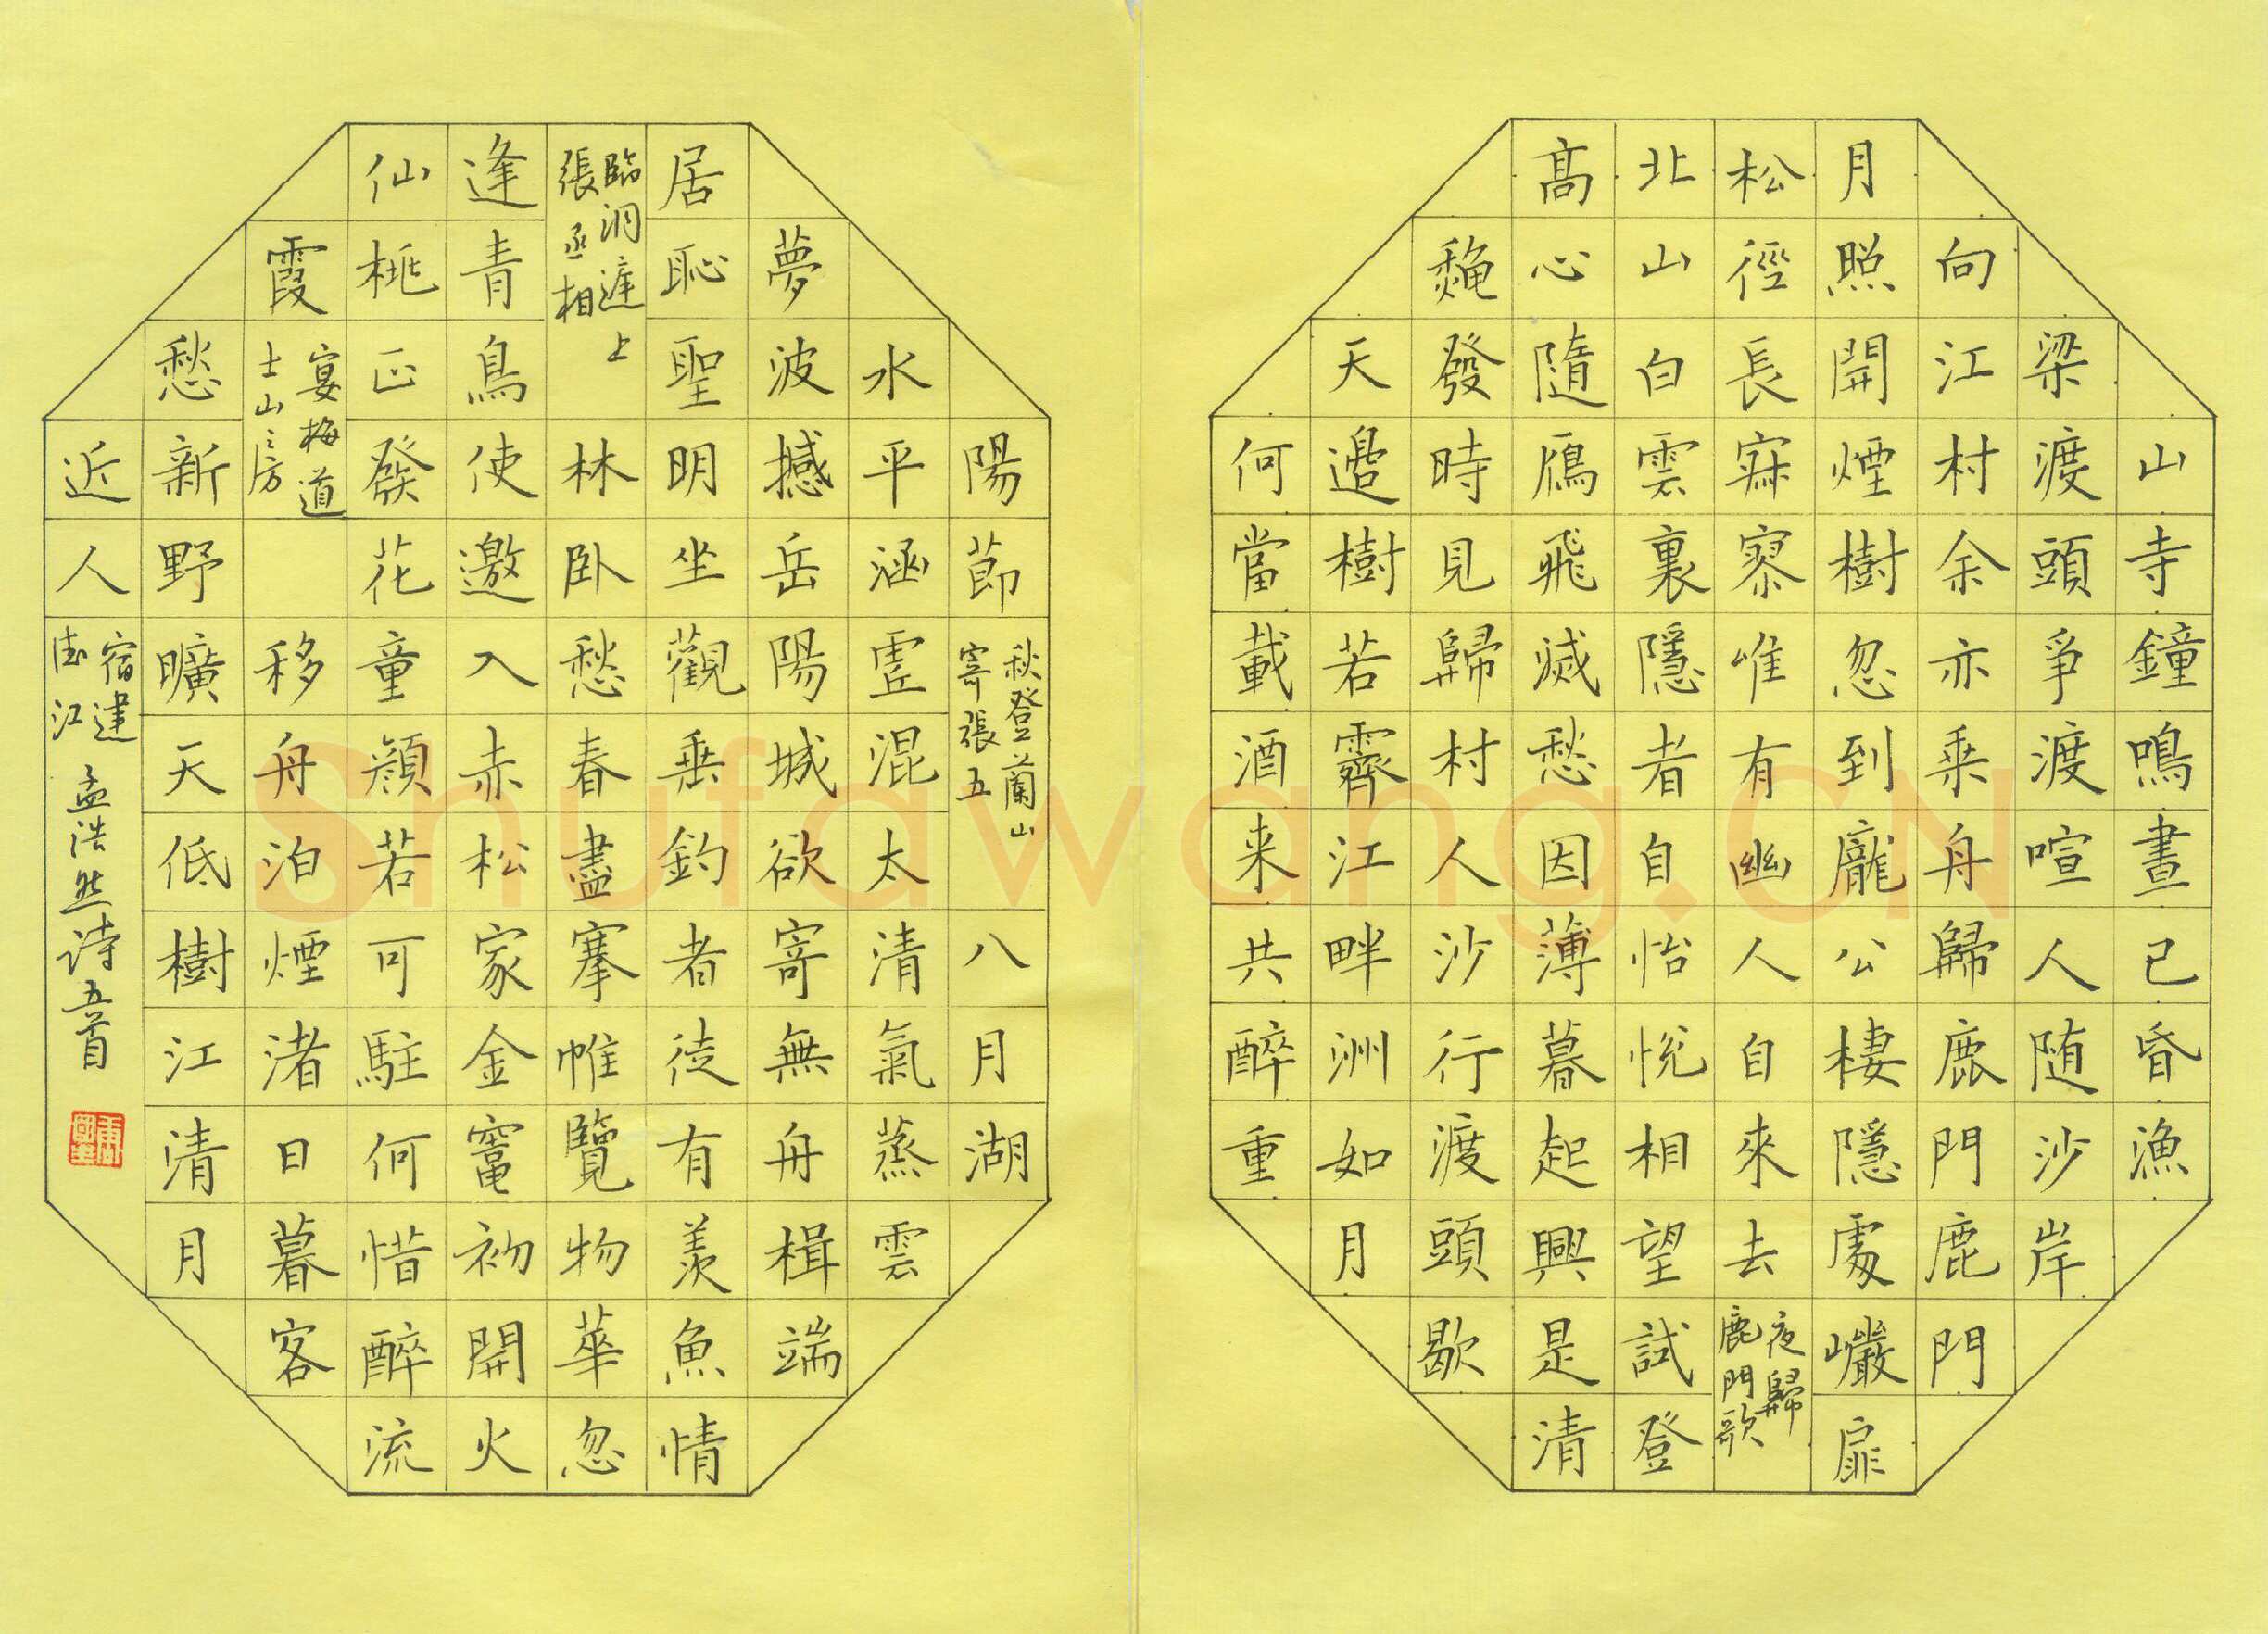 山寺鐘鳴晝已昏漁
梁渡頭爭渡喧人随沙岸
向江村余亦乘舟歸鹿門鹿門
月照開煙樹忽到龐公棲隱處巖扉
松徑長寂寥唯有幽人自來去
夜歸
鹿門歌
北山白雲裏隱者自怡悅相望試登
高心隨鴈飛滅愁因薄暮起興是清
穐發時見歸村人沙行渡頭歇
天邊樹若霽江畔洲如月
何當載酒来共醉重
陽節
秋登蘭山
寄張五
八月湖
水平涵虛混太清氣蒸雲
夢波撼岳陽城欲寄無舟楫端
居恥聖明坐觀垂釣者徒有羨魚情
臨洞庭上
張丞相
林卧愁春盡搴帷覽物華忽
逢青鳥使邀入赤松家金竈初開火
仙桃正發花童顏若可駐何惜醉流
霞
宴梅道
士山之房
移舟泊煙渚日暮客
愁新野曠天低樹江清月
近人
宿建
德江
孟浩然诗五首
Shufawang.CN